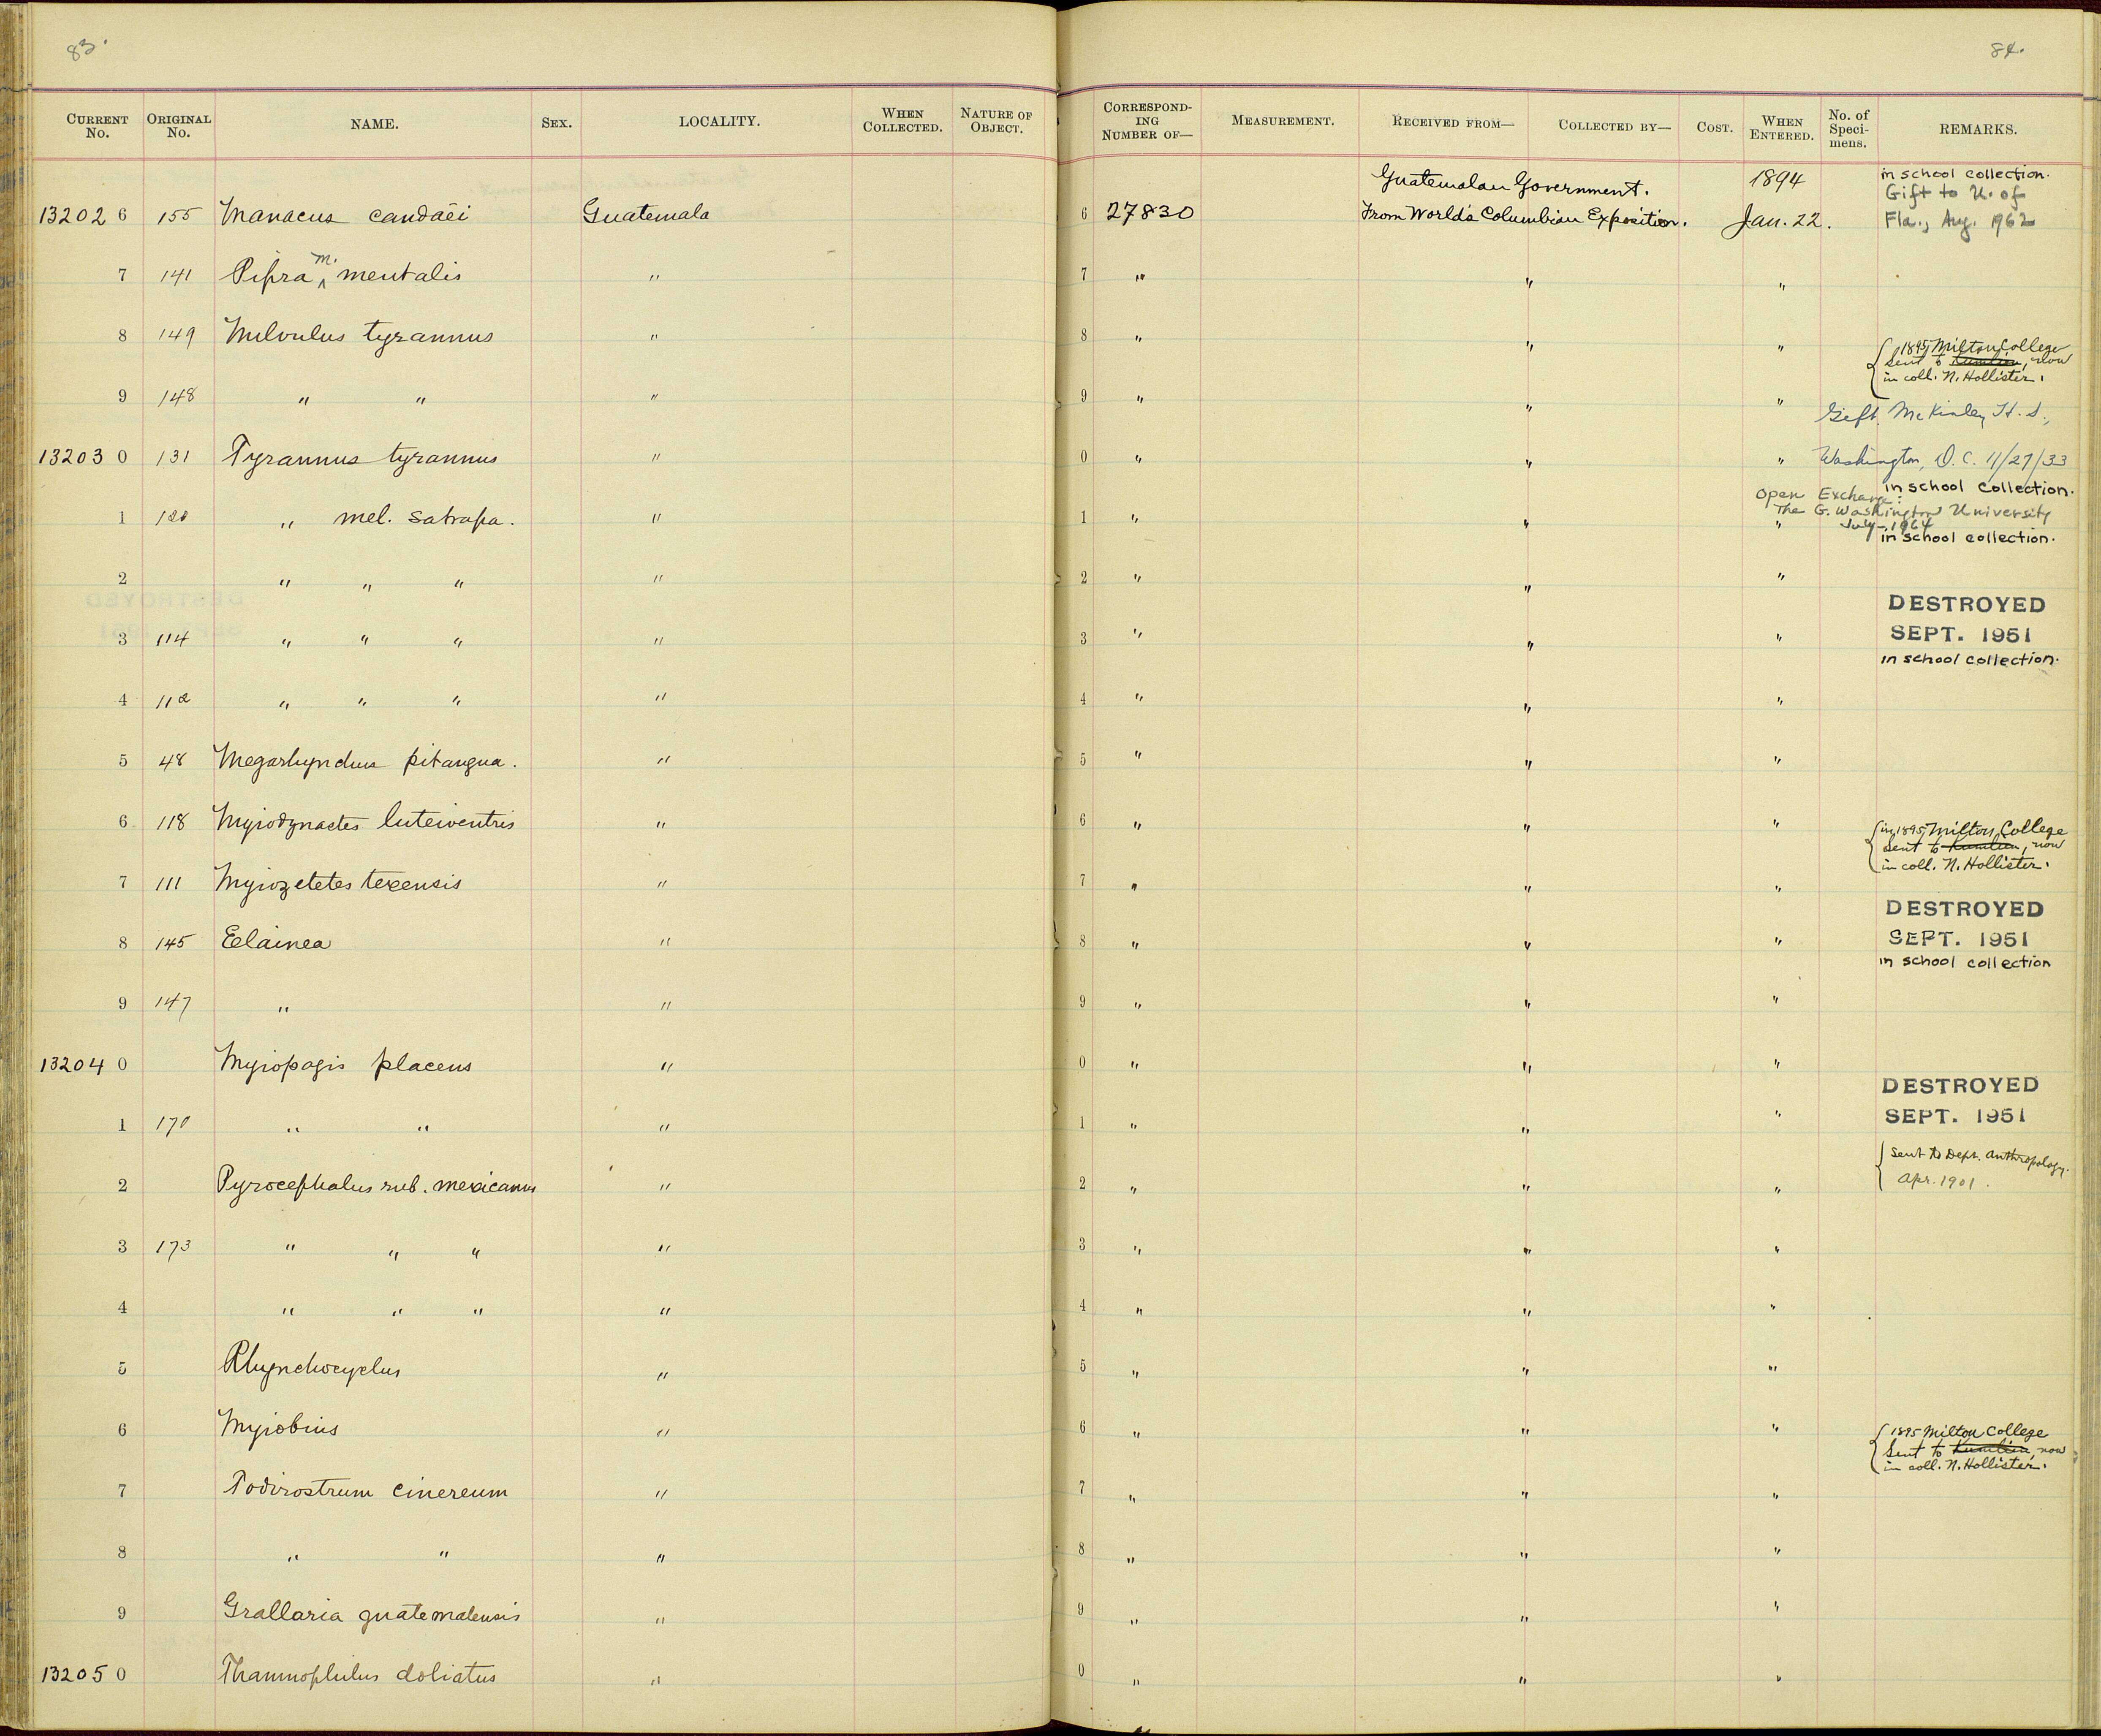 83.
CURRENT No. ORIGINAL No. NAME. SEX. LOCALITY. WHEN COLLECTED. NATURE OF OBJECT.
13202 6 155 Manacus candaei Guatemala
7 141 Pipra m. mentalis "
8 149 Milvulus tyrannus "
9 148 " " "
13203 0 131 Tyrannus tyrannus "
1 120 " mel. satrapa. "
2 " " " "
3 114 " " " "
4 112 " " " "
5 48 Megarhynchus pitangua. "
6 118 Myiodynastes luteiventris "
7 111 Myiozetetes texensis "
8 145 Eelainea "
9 147 " "
13204 0 Myiopagis placens "
1 170 " " "
2 Pyrocephalus rub. mexicanus "
3 173 " " " "
4 " " " "
5 Rhynchocyclus "
6 Myiobius "
7 Todirostrum cinereum "
8 " " "
9 Grallaria guatemalensis "
13205 0 Thamnophilus doliatus "
84.
CORRESPONDING NUMBER OF— MEASUREMENT. RECEIVED FROM— COLLECTED BY— COST. WHEN ENTERED. No. of Specimens. REMARKS.
Guatemalan Government. 1894 in school collection.
Gift to U. of
6 27830 From World's Columbian Exposition. Jan. 22. Fla., Aug. 1962
7 " " "
8 " " " 1895 Milton College
Sent to Kumlien, now
in coll. N. Hollister.
9 " " "
Gift McKinley H. S.,
0 " " " Washington, D.C. 11/27/33
in school collection.
Open Exchange:
The G. Washington University
1 " " " July - 1964
in school collection.
2 " " "
DESTROYED
3 " " " SEPT. 1951
in school collection.
4 " " "
5 " " "
6 " " " in 1895 Milton College
Sent to Kumlien, now
in coll. N. Hollister.
7 " " "
DESTROYED
8 " " " SEPT. 1951
in school collection
9 " " "
0 " " "
DESTROYED
1 " " " SEPT. 1951
Sent to Dept. Anthropology.
2 " " " Apr. 1901.
3 " " "
4 " " "
5 " " "
6 " " " 1895 Milton College
Sent to Kumlien, now
in coll. N. Hollister.
7 " " "
8 " " "
9 " " "
0 " " "